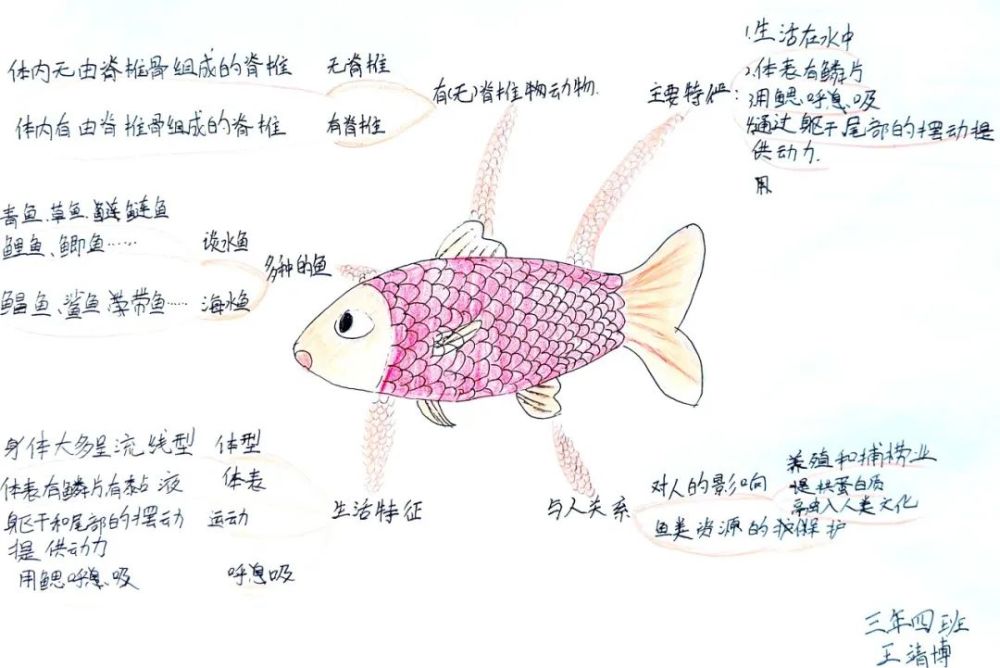 体内无由脊椎骨组成的脊椎 无脊椎
体内有由脊椎骨组成的脊椎 有脊椎
有(无)脊椎物动物.
主要特征:
1.生活在水中
2.体表有鳞片
3.用鳃呼息吸
4.通过躯干尾部的摆动提
供动力.
用
青鱼、草鱼、鲢鱼
鲤鱼、鲫鱼…… 淡水鱼
多种的鱼
鲳鱼、鲨鱼、带鱼…… 海水鱼
身体大多呈流线型 体型
体表有鳞片有黏液 体表
躯干和尾部的摆动 运动
提供动力
用鳃呼息吸 呼息吸
生活特征
与人关系
对人的影响
养殖和捕捞业
提供蛋白质
融入人类文化
鱼类资源的保护
三年四班
王靖博